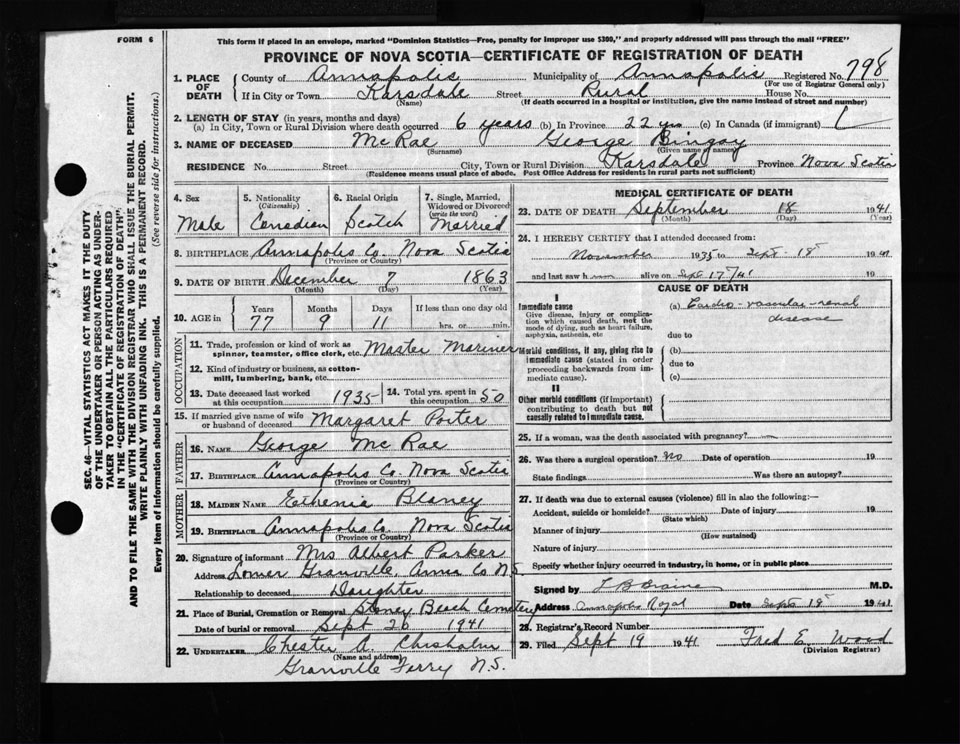 FORM 6
This form if placed in an envelope, marked "Dominion Statistics—Free, penalty for improper use $300," and properly addressed will pass through the mail "FREE"
PROVINCE OF NOVA SCOTIA—CERTIFICATE OF REGISTRATION OF DEATH
1. PLACE OF DEATH County of Annapolis Municipality of Annapolis Registered No. 798
(For use of Registrar General only)
If in City or Town Karsdale Street Rural House No.
(Name) (If death occurred in a hospital or institution, give the name instead of street and number)
2. LENGTH OF STAY (in years, months and days)
(a) In City, Town or Rural Division where death occurred 6 years (b) In Province 22 yrs (c) In Canada (if immigrant)
3. NAME OF DECEASED McRae George Bingay
(Surname) (Given name or names)
RESIDENCE No. Street City, Town or Rural Division Karsdale Province Nova Scotia
(Residence means usual place of abode. Post Office Address for residents in rural parts not sufficient)
4. Sex Male
5. Nationality (Citizenship) Canadian
6. Racial Origin Scotch
7. Single, Married, Widowed or Divorced (write the word) Married
8. BIRTHPLACE Annapolis Co. Nova Scotia
(Province or Country)
9. DATE OF BIRTH December 7 1863
(Month) (Day) (Year)
10. AGE in Years 77 Months 9 Days 11 If less than one day old hrs. or min.
OCCUPATION
11. Trade, profession or kind of work as spinner, teamster, office clerk, etc. Master Mariner
12. Kind of industry or business, as cotton-mill, lumbering, bank, etc.
13. Date deceased last worked at this occupation 1935 14. Total yrs. spent in this occupation 50
15. If married give name of wife or husband of deceased Margaret Porter
FATHER
16. NAME George McRae
17. BIRTHPLACE Annapolis Co. Nova Scotia
(Province or Country)
MOTHER
18. MAIDEN NAME Ethenia Blaney
19. BIRTHPLACE Annapolis Co. Nova Scotia
(Province or Country)
20. Signature of informant Mrs Albert Parker
Address Lower Granville, Anna Co N.S.
Relationship to deceased Daughter
21. Place of Burial, Cremation or Removal Stoney Beach Cemetery
Date of burial or removal Sept 20 1941
22. UNDERTAKER Chester A. Chisholm
(Name and address)
Granville Ferry N.S.
MEDICAL CERTIFICATE OF DEATH
23. DATE OF DEATH September 18 1941
(Month) (Day) (Year)
24. I HEREBY CERTIFY that I attended deceased from:
November 1935 to Sept 18 1941
and last saw him alive on Sept 17/41 19
CAUSE OF DEATH
I
Immediate cause
Give disease, injury or complication which caused death, not the mode of dying, such as heart failure, asphyxia, asthenia, etc
(a) Cardio-vascular-renal disease
due to
Morbid conditions, if any, giving rise to immediate cause (stated in order proceeding backwards from immediate cause).
(b)
due to
(c)
II
Other morbid conditions (if important) contributing to death but not causally related to immediate cause.
25. If a woman, was the death associated with pregnancy?
26. Was there a surgical operation? No Date of operation 19
State findings Was there an autopsy?
27. If death was due to external causes (violence) fill in also the following:—
Accident, suicide or homicide? Date of injury 19
(State which)
Manner of injury
(How sustained)
Nature of injury
Specify whether injury occurred in industry, in home, or in public place
Signed by L B Braine M.D.
Address Annapolis Royal Date Sept 18 1941
28. Registrar's Record Number
29. Filed Sept 19 1941 Fred E. Wood
(Division Registrar)
SEC. 46—VITAL STATISTICS ACT MAKES IT THE DUTY
OF THE UNDERTAKER OR PERSON ACTING AS UNDER-
TAKER TO OBTAIN ALL THE PARTICULARS REQUIRED
IN THE "CERTIFICATE OF REGISTRATION OF DEATH"
AND TO FILE THE SAME WITH THE DIVISION REGISTRAR WHO SHALL ISSUE THE BURIAL PERMIT.
WRITE PLAINLY WITH UNFADING INK. THIS IS A PERMANENT RECORD.
Every item of information should be carefully supplied. (See reverse side for instructions.)